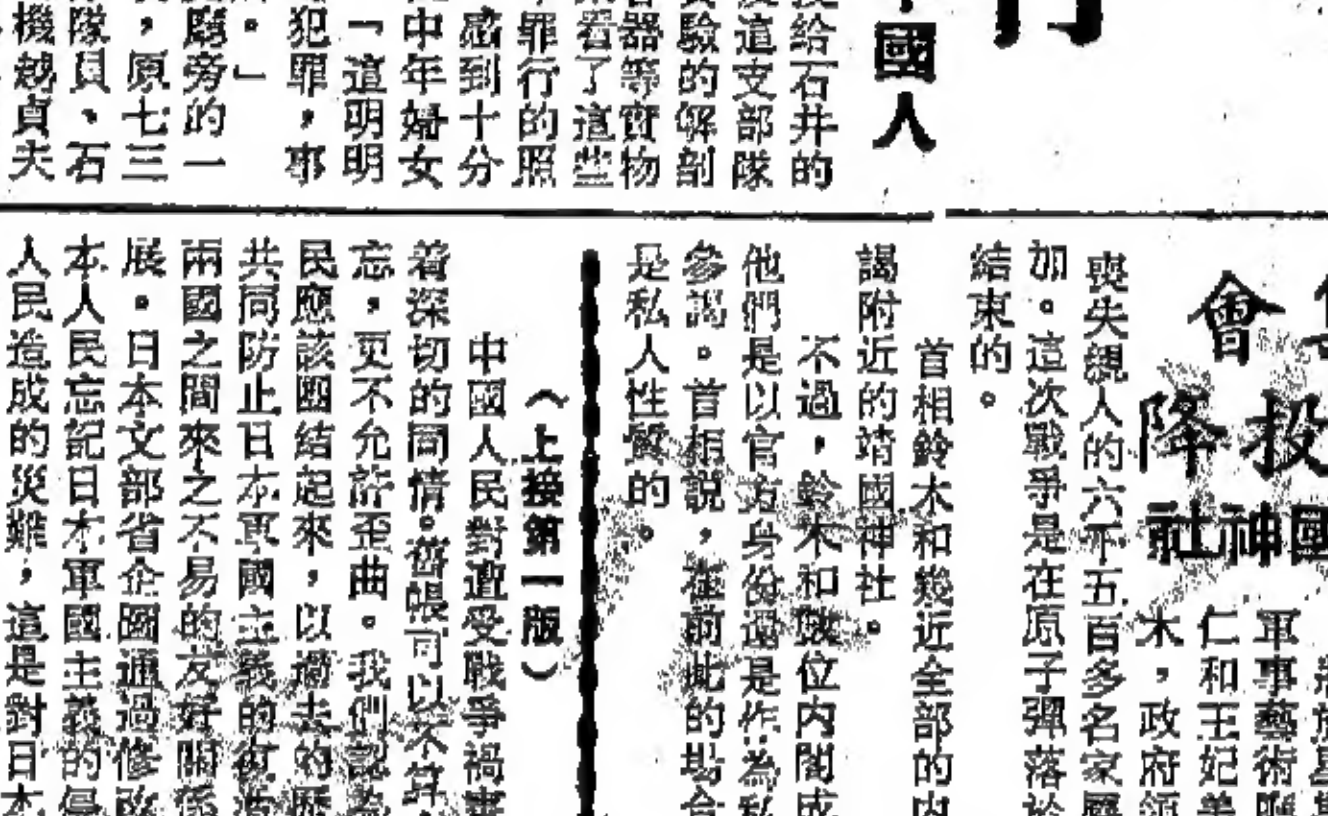 中國人
投給石井的
這支部隊
驗的解剖
器等實物
看了這些
罪行的照
感到十分
中年婦女
「這明明
犯罪，事
。」
旁的一
，原七三
隊員、石
機越貞夫
會
投降
國神社
軍事藝術
仁和王妃美
木，政府
喪失親人的六千五百多名家屬
加。這次戰爭是在原子彈落於
結束的。
首相鈴木和幾近全部的內
謁附近的靖國神社。
不過，鈴木和數位内閣成
他們是以官方身份還是作為私
參謁。首相說，在前此的場合
是私人性質的。
（上接第一版）
中國人民對遭受戰爭禍害
着深切的同情。舊帳可以不算
忘，更不允許歪曲。我們認為
民應該團結起來，以過去的歷
共同防止日本軍國主義的復活
兩國之間來之不易的友好關係
展。日本文部省企圖通過修改
本人民忘記日本軍國主義的侵
人民造成的災難，這是對日本